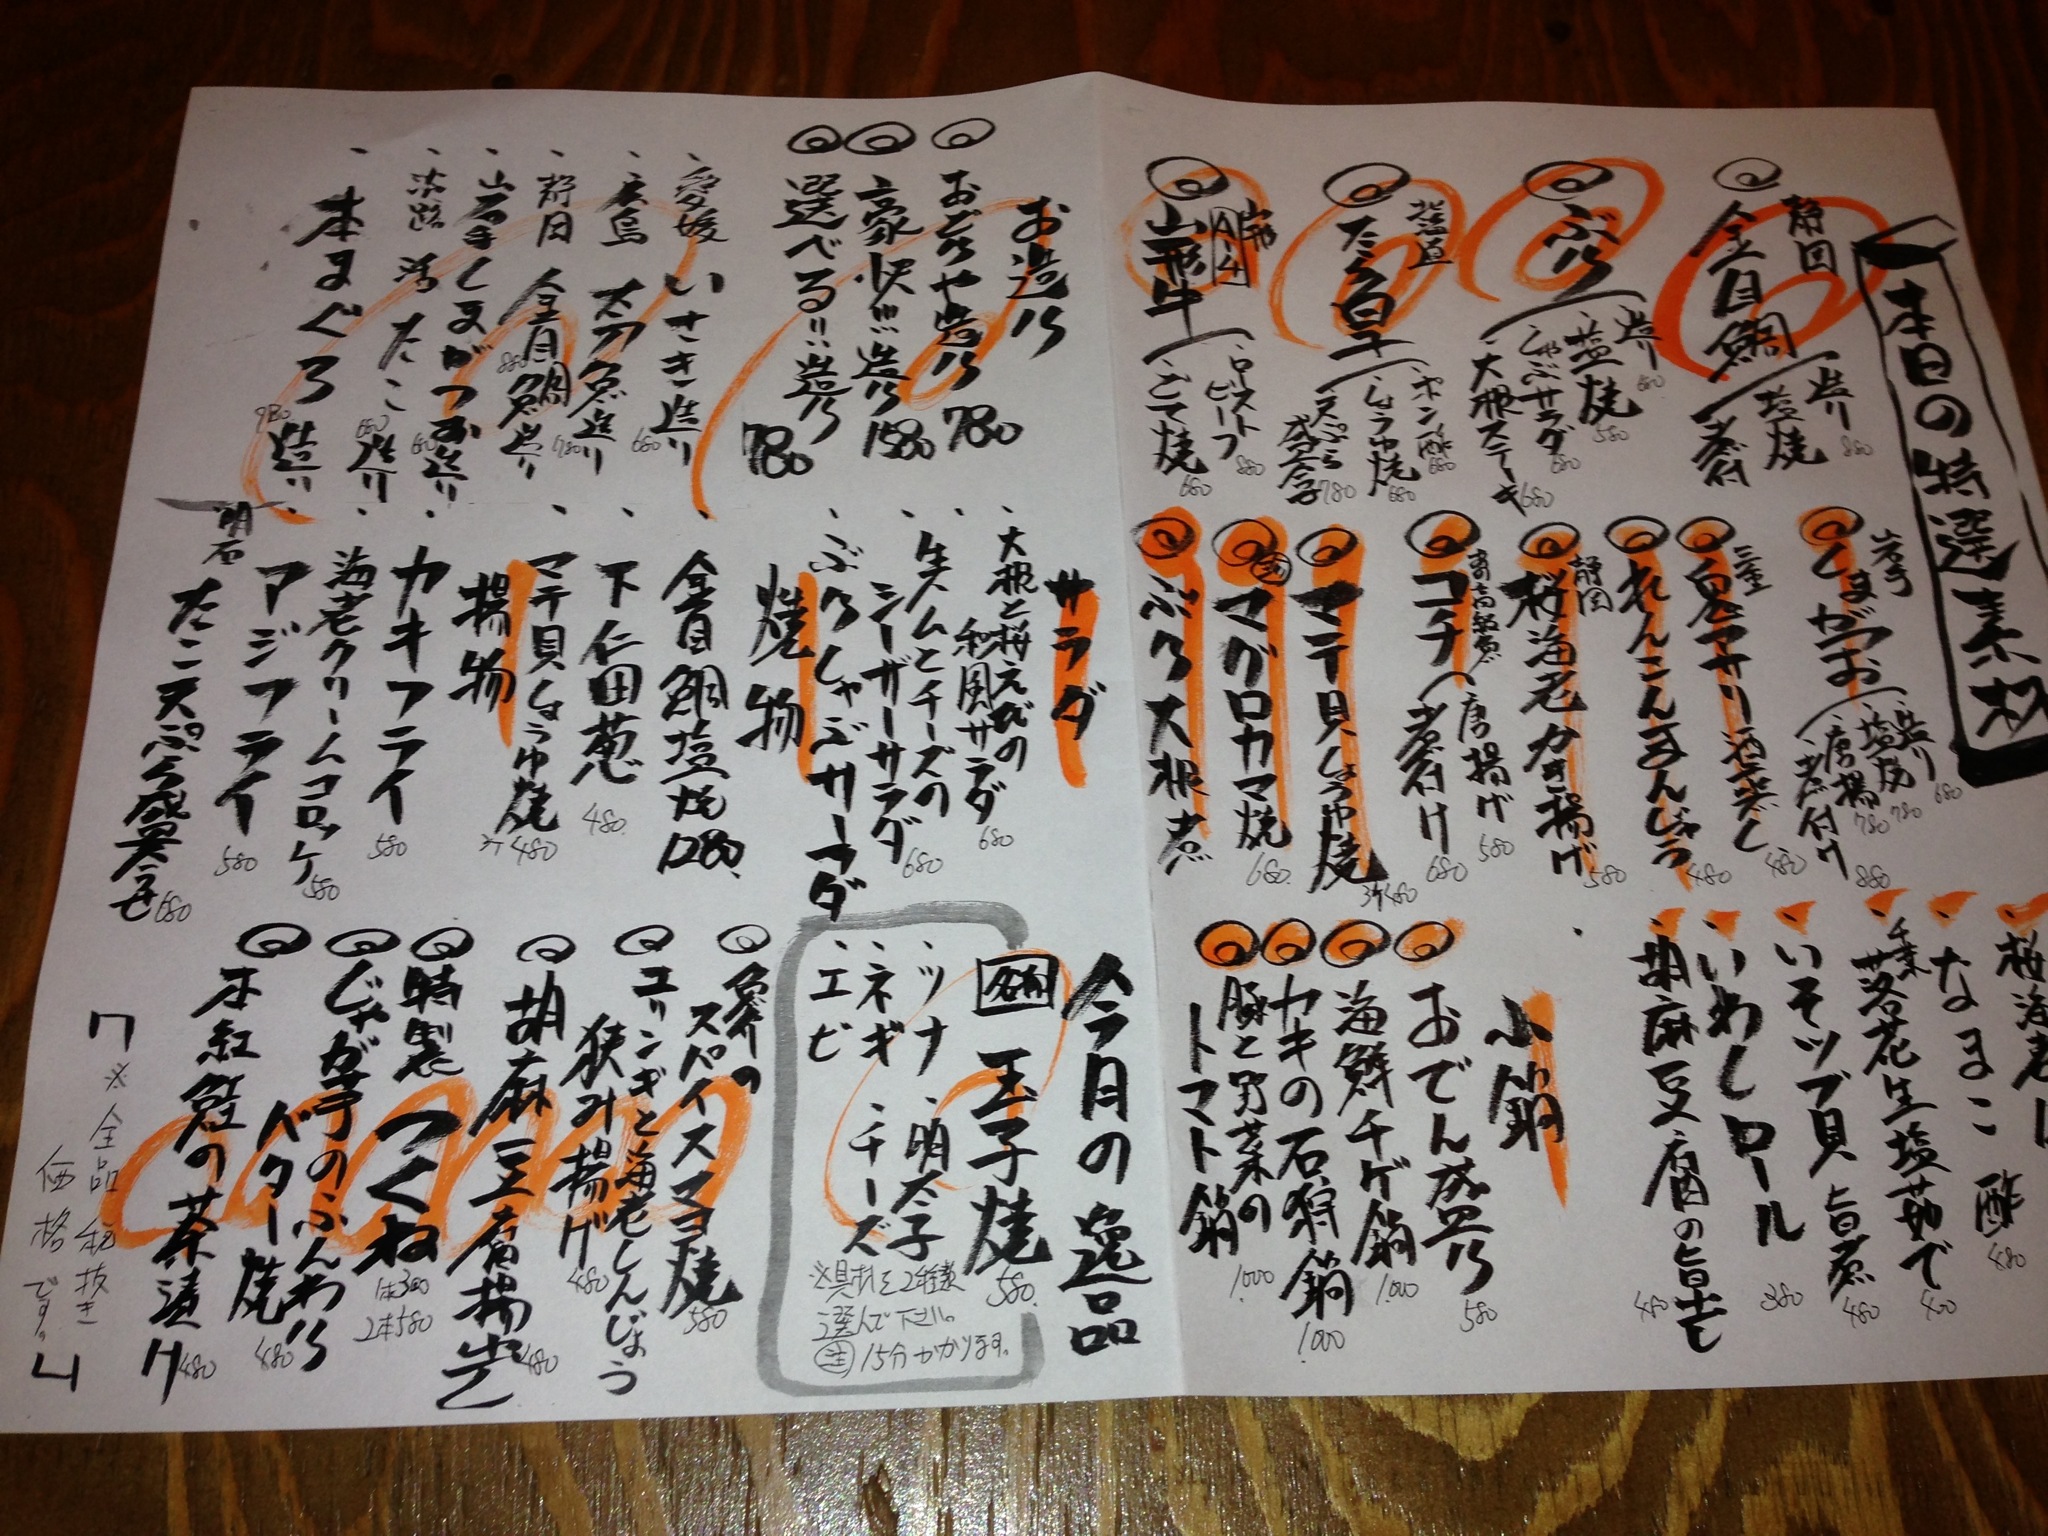 本日の特選素材
静岡
金目鯛
造り 880
塩焼
煮付
ぶり
造り 680
塩焼 580
しゃぶサラダ 680
大根ステーキ 680
北海道
たら白子
ポン酢 680
しょうゆ焼 680
天ぷら盛合せ 780
山形
A4
山形牛
ローストビーフ 880
たたき焼 680
岩手
しまがつお
造り 680
塩焼 780
唐揚 780
煮付け 880
三重
鬼アサリ酒蒸し 480
れんこんまんじゅう 480
静岡
桜海老かき揚げ 580
寿高級魚
コチ
唐揚げ 580
煮付け 680
マテ貝しょうゆ焼 3ヶ480
マグロカマ焼 680
ぶり大根煮
なまこ酢 480
千葉
落花生塩茹で 400
いそツブ貝旨煮 480
いわしロール 380
胡麻豆腐の旨だし 480
小鍋
おでん盛り 580
海鮮チゲ鍋 1,000
カキの石狩鍋 1,000
豚と野菜の
トマト鍋 1,000
お造り
おどりや造り 780
豪快!!!造り 1580
選べる!!造り 780
愛媛 いさき造り 680
広島 太刀魚造り 780
静岡 金目鯛造り 880
岩手しまがつお造り 680
淡路 活たこ造り 680
本まぐろ造り 980
サラダ
大根と桜えびの
和風サラダ 680
生ハムとチーズの
シーザーサラダ 680
ぶりしゃぶサラダ
焼物
金目鯛塩焼 1280
下仁田葱 480
マテ貝しょうゆ焼 3ヶ480
揚物
カキフライ 580
海老クリームコロッケ 580
アジフライ 580
明石
たこ天ぷら盛合せ 680
今月の逸品
玉子焼 580
・ツナ ・明太子
・ネギ ・チーズ
・エビ
※具材を2種類
選んで下さい。
注 15分かかります。
スパイスマヨ焼 580
エリンギと海老しんじょう
挟み揚げ 480
胡麻豆腐揚出し 480
特製
つくね
1本300
2本580
じゃが芋のふんわり
バター焼 480
本紅鮭の茶漬け 480
「※全品税抜き
価格です。」